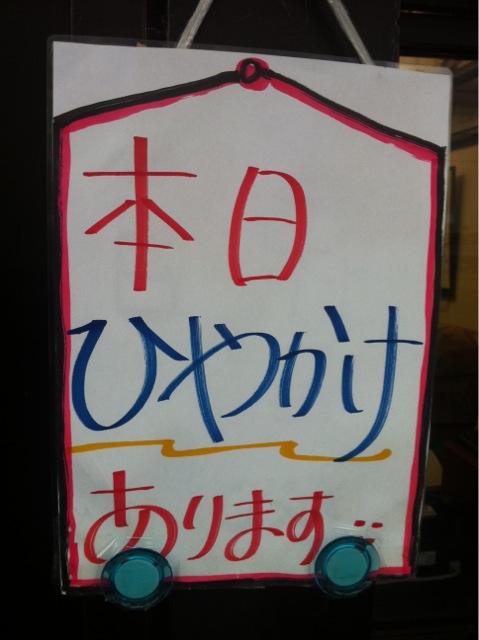 本日
ひやかけ
あります